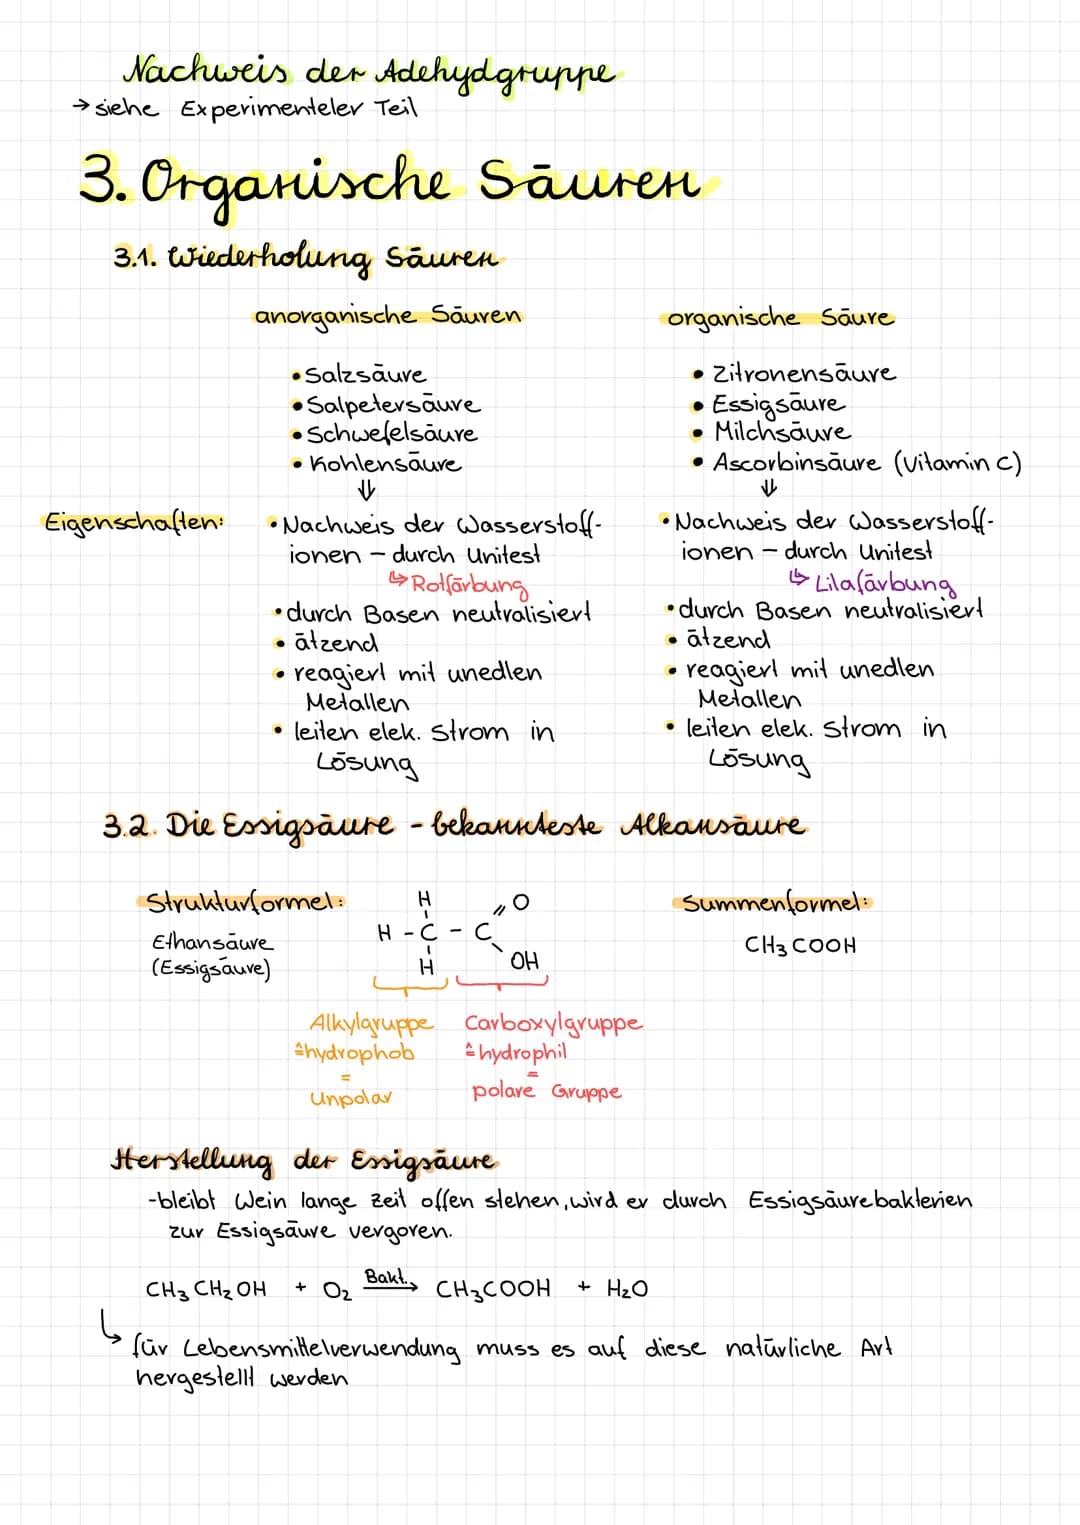 Nachweis der Adehydgruppe
→ siehe Experimenteler Teil
3. Organische Säuren
3.1. Wiederholung Säuren
anorganische Säuren
organische Säure
• Salzsäure
• Salpetersäure
• Schwefelsäure
• Kohlensäure
⇓
• Zitronensäure
• Essigsäure
• Milchsäure
• Ascorbinsäure (Vitamin C)
⇓
Eigenschaften:
• Nachweis der Wasserstoff-
ionen – durch Unitest
↳ Rotfärbung
• durch Basen neutralisiert
• ätzend
• reagiert mit unedlen
Metallen
• leiten elek. Strom in
Lösung
• Nachweis der Wasserstoff-
ionen – durch Unitest
↳ Lilafärbung
• durch Basen neutralisiert
• ätzend
• reagiert mit unedlen
Metallen
• leiten elek. Strom in
Lösung
3.2. Die Essigsäure - bekannteste Alkansäure
Strukturformel:
Ethansäure
(Essigsäure)
H
O
H - C - C
H
OH
Summenformel:
CH3COOH
Alkylgruppe
≙ hydrophob
=
Unpolar
Carboxylgruppe
≙ hydrophil
=
polare Gruppe
Herstellung der Essigsäure
-bleibt Wein lange Zeit offen stehen, wird er durch Essigsäurebakterien
zur Essigsäure vergoren.
CH3CH2OH + O2 Bakt.→ CH3COOH + H2O
↳ für Lebensmittelverwendung muss es auf diese natürliche Art
hergestellt werden